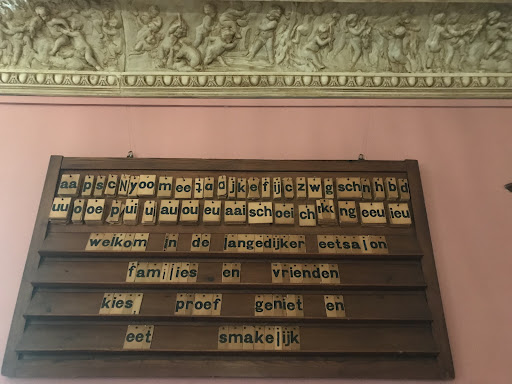 aa p s c N y oo m ee t a d j k e f ij c z w g sch n h b d
uu o oe p ui u au ou eu aai sch oei ch nk ng eeu ieu
welkom in de langedijker eetsalon
families en vrienden
kies proef geniet en
eet smakelijk